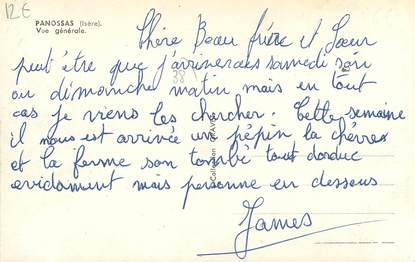 12€
PANOSSAS (Isère).
Vue générale.
Chère Beau frère et Sœur
peut être que j'arriverais samedi soir
38
ou dimanche matin mais en tout
cas je viens les chercher. Cette semaine
il nous est arrivée un pépin la chèvres
et la ferme son tombé tout
evidament mais personne en dessous
James
Collection